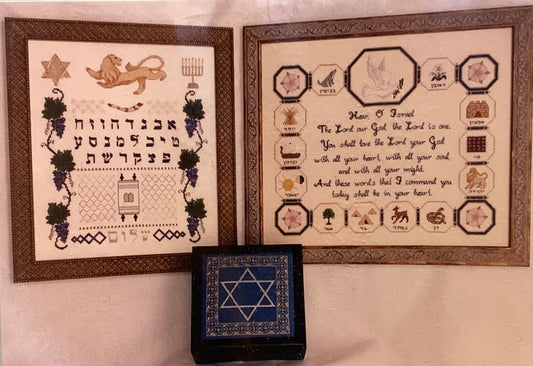 אבגדהוזח
טיכלמנסע
פצקרשת
שלום
בנימין
ראובן
Hear, O Israel
The Lord our God, the Lord is one.
You shall love the Lord your God
with all your heart, with all your soul,
and with all your might.
And these words that I command you
today shall be in your heart.
יוסף
שמעון
לוי
יהודה
אשר
גד
נפתלי
דן